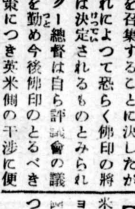 を召集することに決したが
れによつて恐らく佛印の將
は決定されるものとみられ
ター總督は自ら評議會の議
を勤め今後佛印のとるべき
策につき英米側の干渉に便